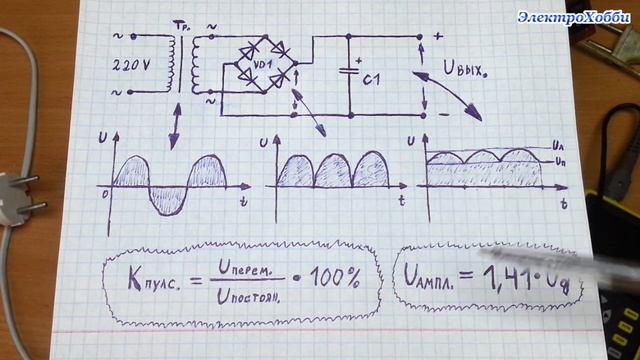 ЭлектроХобби
~ Тр. ~ +
220V VD1 + C1 Uвых.
~ ~ −
U U U Uл
Uп
0 t t t
Kпулс. = Uперем. / Uпостоян. • 100%
Uампл. = 1,41 • Uд